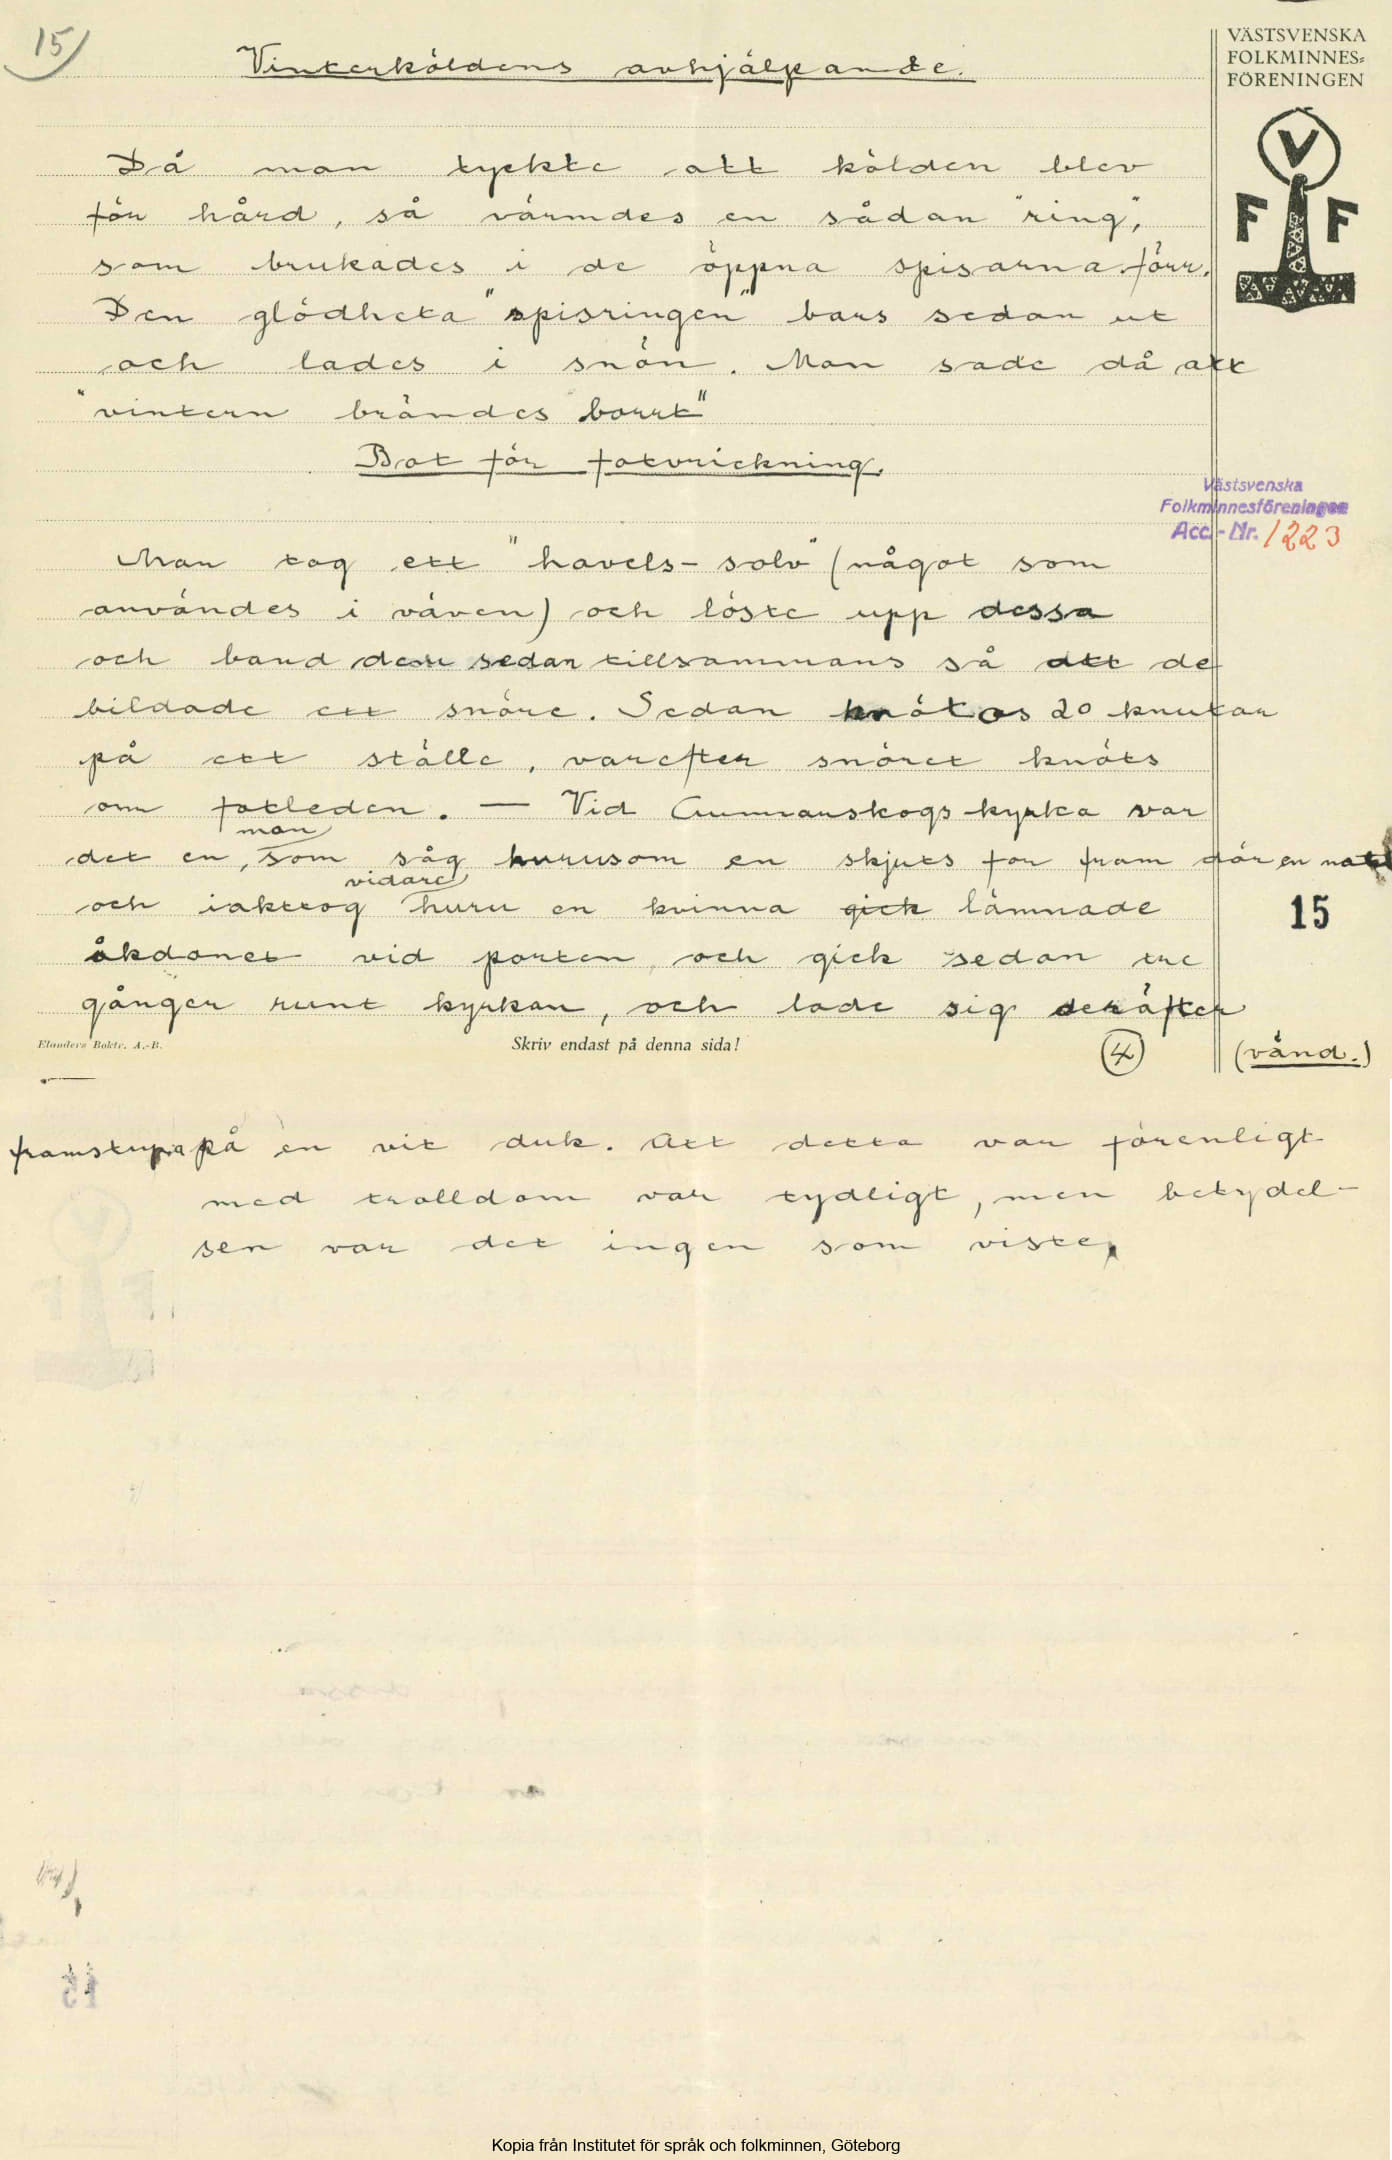 15)
VÄSTSVENSKA
FOLKMINNES=
FÖRENINGEN
V
F F
Vinterköldens avhjälpande.
Då man tyckte att kölden blev
för hård, så värmdes en sådan "ring",
som brukades i de öppna spisarna förr.
Den glödheta "spisringen" bars sedan ut
och lades i snön. Man sade då att
"vintern brändes borrt"
Bot för fotvrickning.
Västsvenska
Folkminnesföreningen
Acc.-Nr. 1223
Man tog ett "havels-solv" (något som
användes i väven) och löste upp dessa
och band dem sedan tillsammans så att de
bildade ett snöre. Sedan knötos 20 knutar
på ett ställe, varefter snöret knöts
om fotleden. — Vid Gunnarskogs kyrka var
man
det en, som såg hurusom en skjuts for fram där en natt
vidare
och iakttog huru en kvinna gick lämnade
15
åkdonet vid porten, och gick sedan tre
gånger runt kyrkan, och lade sig deräfter
Elanders Boktr. A.-B.
Skriv endast på denna sida!
4
(vänd.)
framstupa på en vit duk. Att detta var förenligt
med trolldom var tydligt, men betydel-
sen var det ingen som visste.
Kopia från Institutet för språk och folkminnen, Göteborg